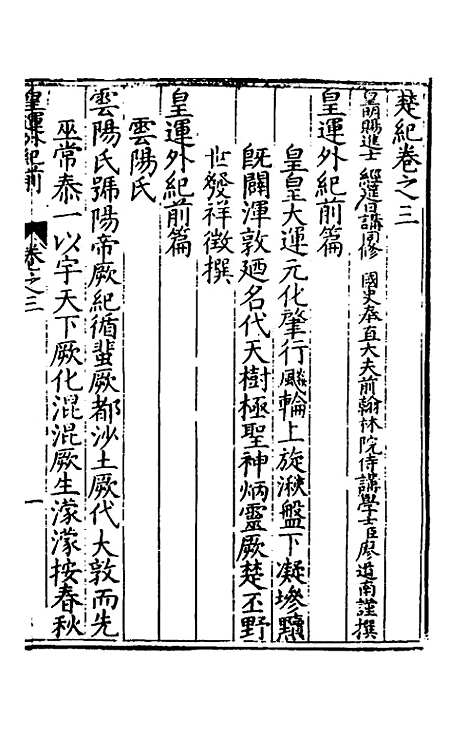 楚紀卷之三
皇明賜進士 經筵日講同修 國史奉直大夫前翰林院侍講學士臣廖道南謹撰
皇運外紀前篇
皇皇大運元化肇行飈輪上旋泱盤下凝墋黷
旣闢渾敦廼名代天樹極聖神炳靈厥楚丕野
世發祥徵撰
皇運外紀前篇
雲陽氏
雲陽氏號陽帝厥紀循蜚厥都沙土厥代大敦而先
巫常泰一以宇天下厥化混混厥生濛濛按春秋
皇運外紀前 卷之三 一